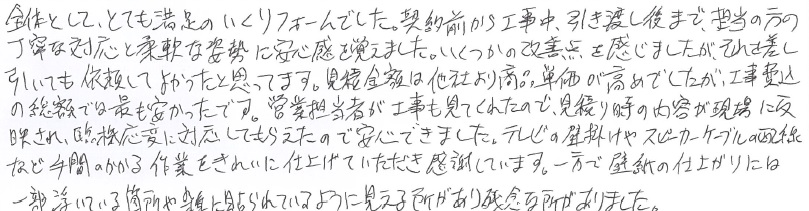 全体として、とても満足のいくリフォームでした。契約前から工事中、引き渡し後まで、担当の方の
丁寧な対応と柔軟な姿勢に安心感を覚えました。いくつかの改善点を感じましたが、それを差し
引いても依頼してよかったと思ってます。見積金額は他社より商品単価が高めでしたが、工事費込
の総額では最も安かったです。営業担当者が工事も見てくれたので、見積り時の内容が現場に反
映され、臨機応変に対応してもらえたので安心できました。テレビの壁掛けやスピーカーケーブルの配線
など手間のかかる作業をきれいに仕上げていただき感謝しています。一方で壁紙の仕上がりには
一部浮いている箇所や雑に貼られているように見える所があり残念な所がありました。